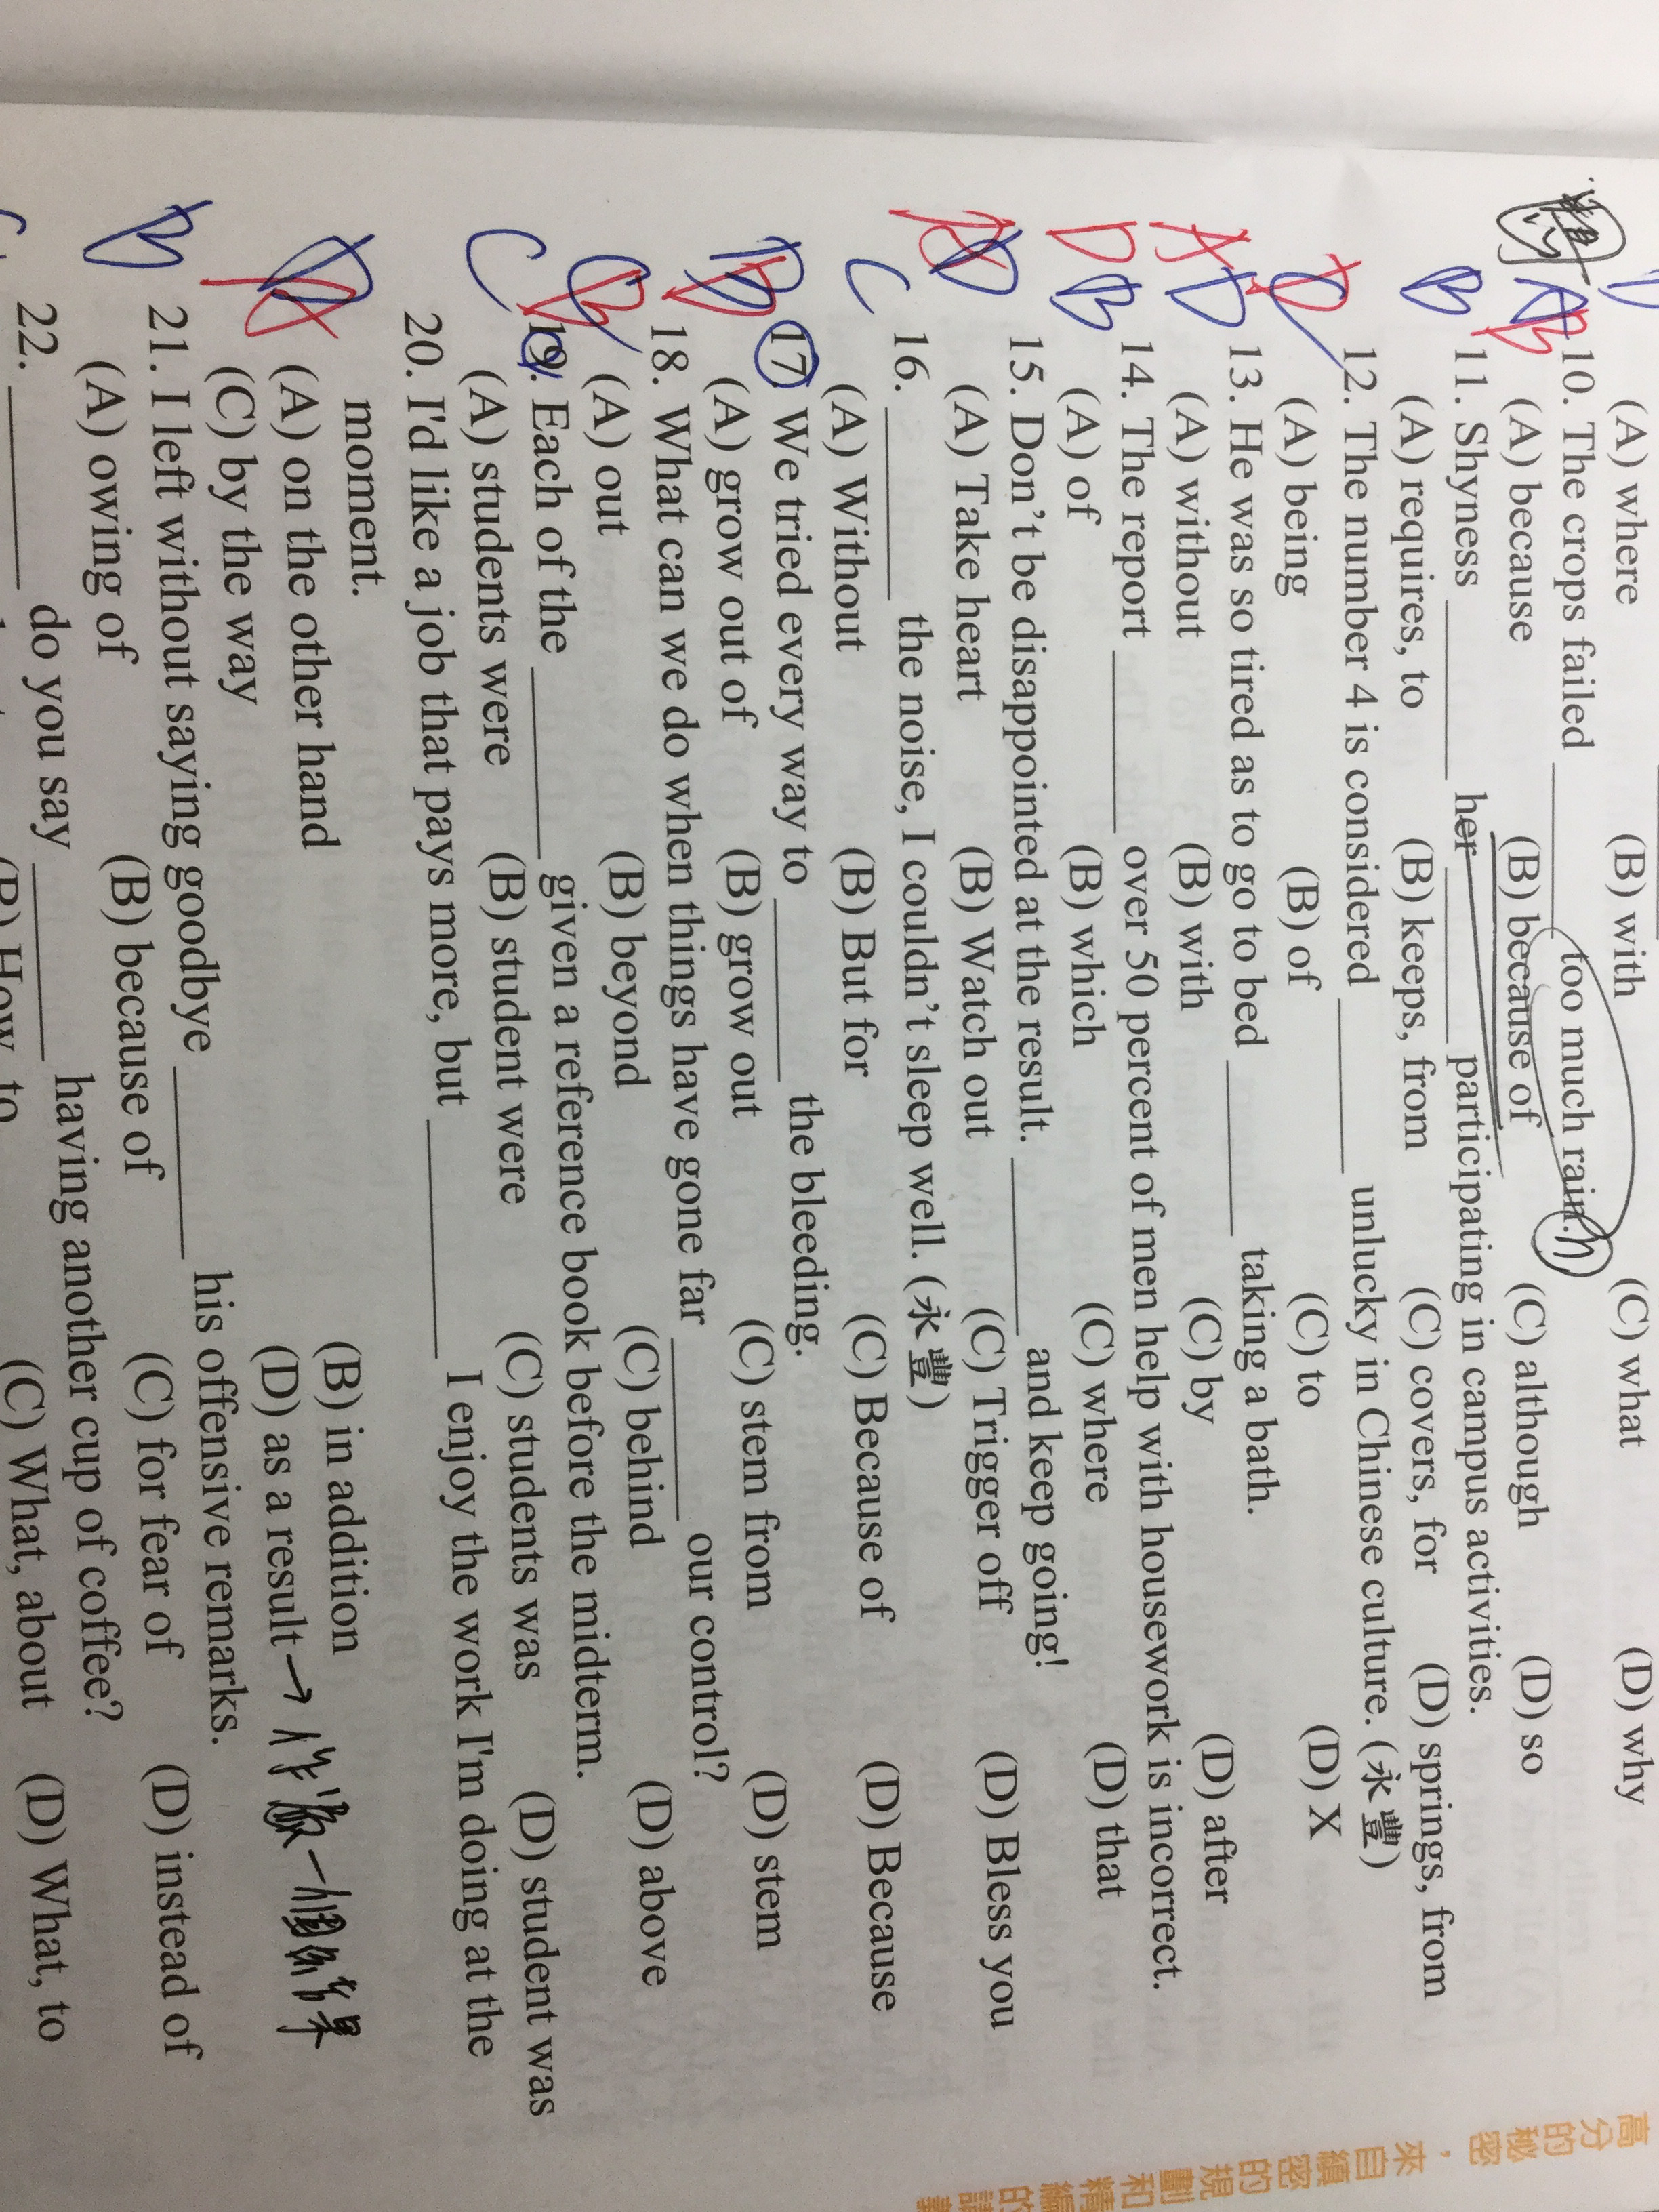 (A) where (B) with (C) what (D) why
10. The crops failed ________ too much rain.
(A) because (B) because of (C) although (D) so
11. Shyness ________ her ________ participating in campus activities.
(A) requires, to (B) keeps, from (C) covers, for (D) springs, from
12. The number 4 is considered ________ unlucky in Chinese culture. (永豐)
(A) being (B) of (C) to (D) X
13. He was so tired as to go to bed ________ taking a bath.
(A) without (B) with (C) by (D) after
14. The report ________ over 50 percent of men help with housework is incorrect.
(A) of (B) which (C) where (D) that
15. Don't be disappointed at the result. ________ and keep going!
(A) Take heart (B) Watch out (C) Trigger off (D) Bless you
16. ________ the noise, I couldn't sleep well. (永豐)
(A) Without (B) But for (C) Because of (D) Because
17. We tried every way to ________ the bleeding.
(A) grow out of (B) grow out (C) stem from (D) stem
18. What can we do when things have gone far ________ our control?
(A) out (B) beyond (C) behind (D) above
19. Each of the ________ given a reference book before the midterm.
(A) students were (B) student were (C) students was (D) student was
20. I'd like a job that pays more, but ________ I enjoy the work I'm doing at the
moment.
(A) on the other hand (B) in addition
(C) by the way (D) as a result →
21. I left without saying goodbye ________ his offensive remarks.
(A) owing of (B) because of (C) for fear of (D) instead of
22. ________ do you say ________ having another cup of coffee?
(B) How, to (C) What, about (D) What, to
B
B
D
A
D
B
C
B
C
B
高分的秘密，來自縝密的規劃和精編的講義